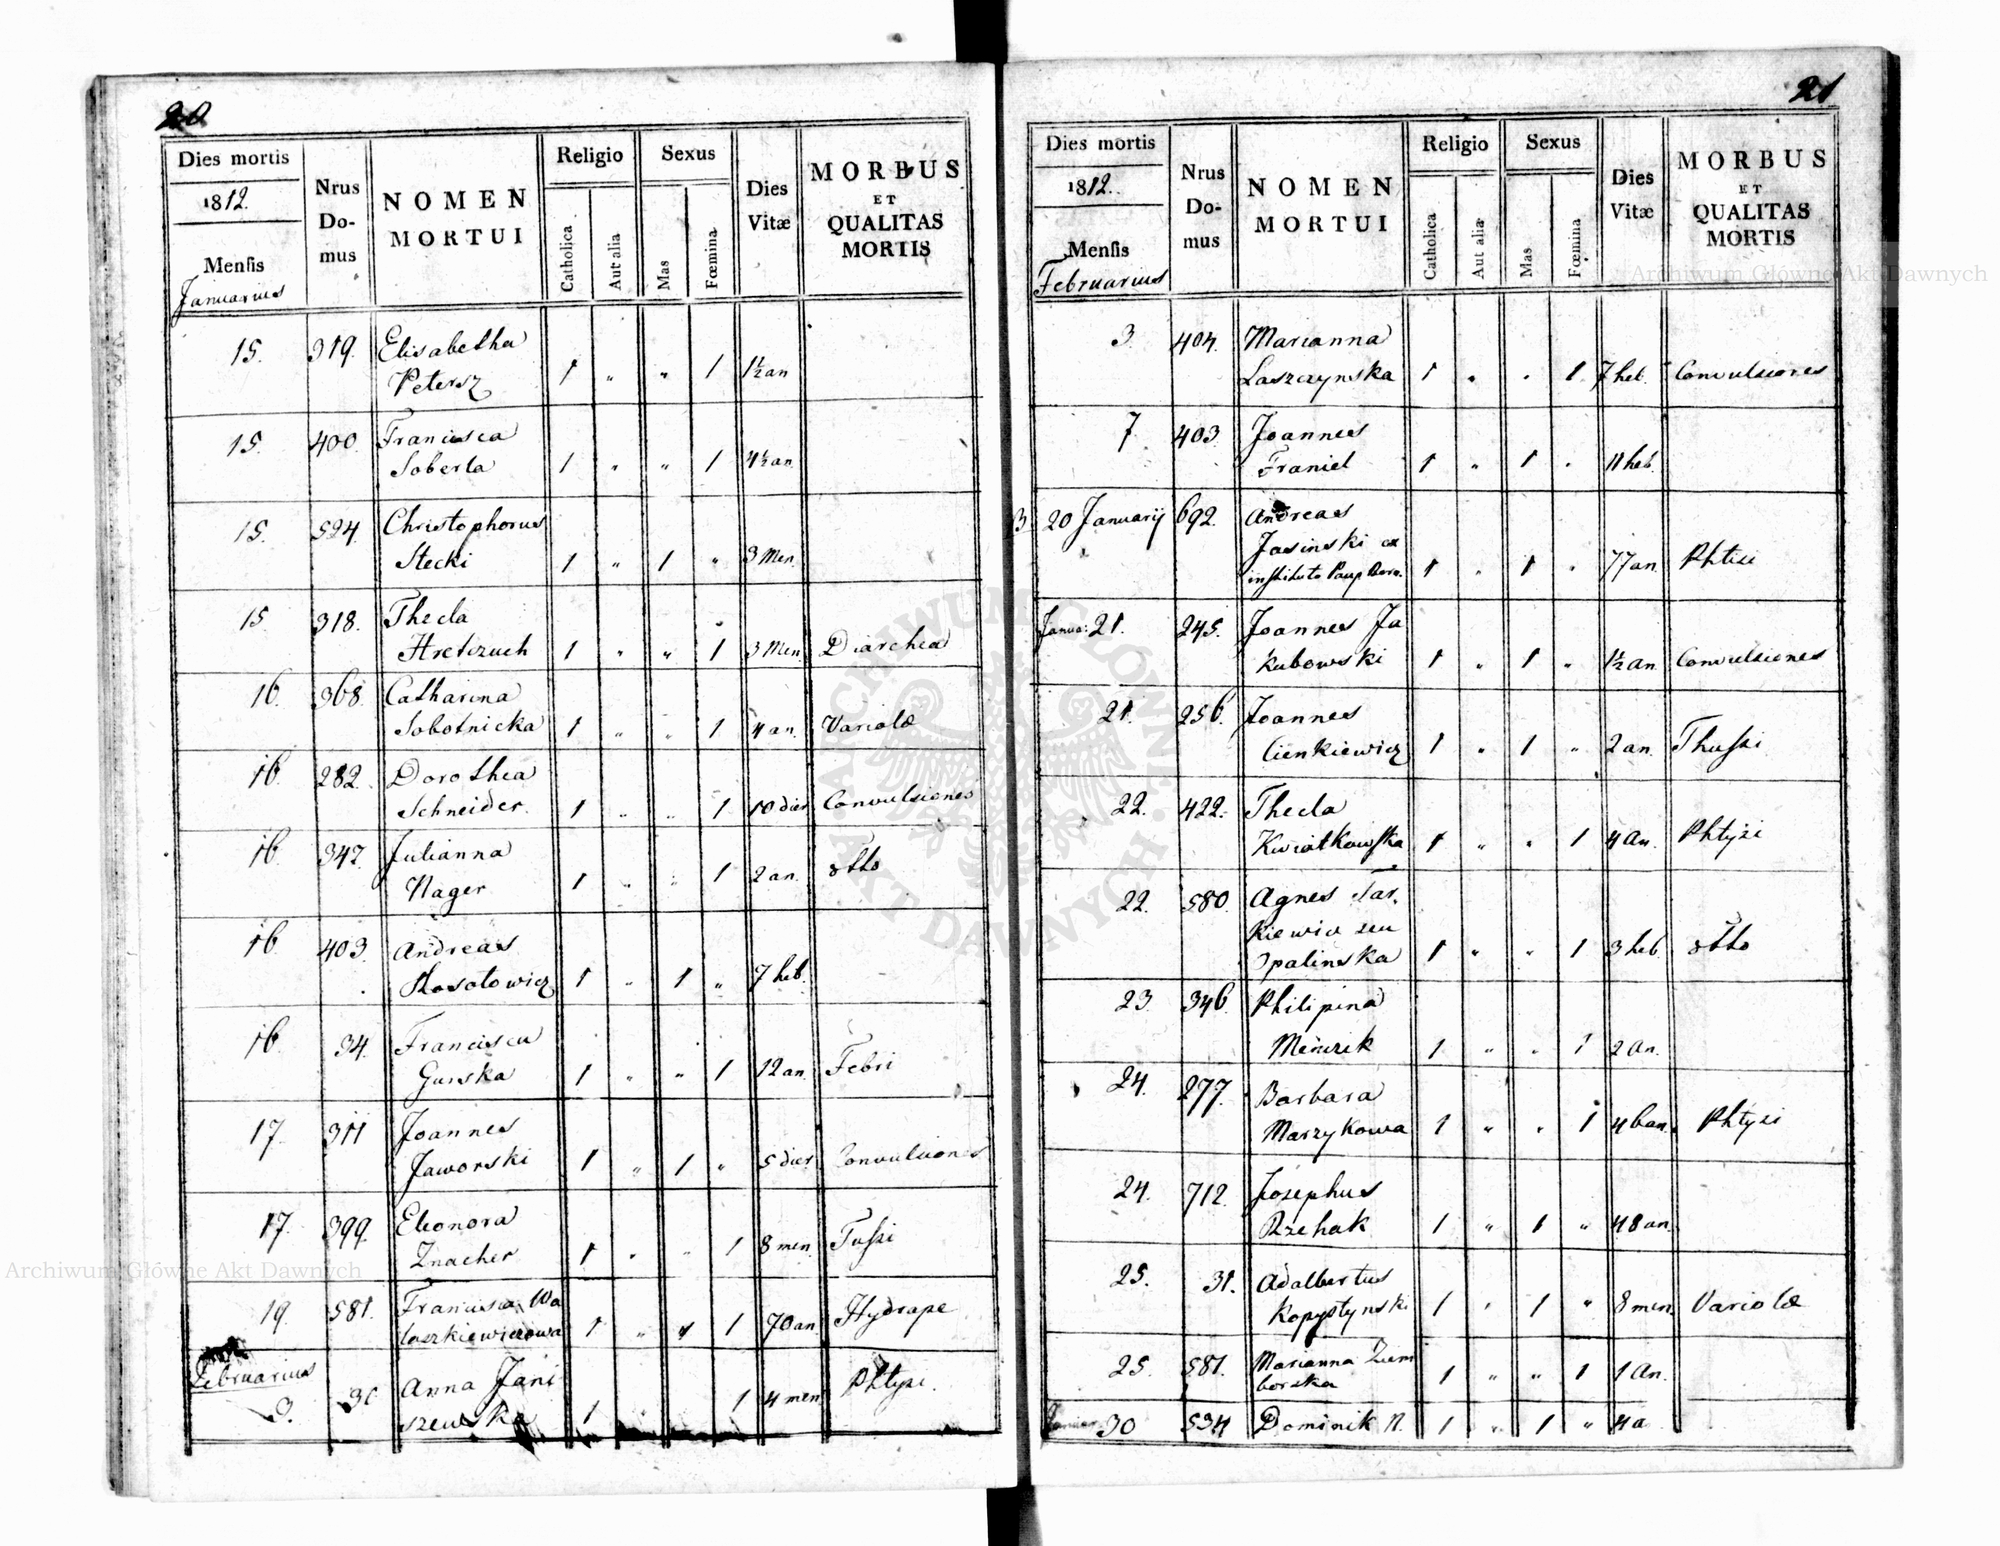 20
Dies mortis
1812.
Mensis
Januarius
Nrus Do-mus
NOMEN MORTUI
Religio
Catholica
Aut alia
Sexus
Mas
Fœmina
Dies Vitæ
MORBUS ET QUALITAS MORTIS
15. 319. Elisabetha
Petersz 1 " " 1 1½ an
15. 400. Francisca
Soberla 1 " " 1 4½ an
15. 524. Christophorus
Stecki 1 " 1 " 3 Men
15. 318. Thecla
Hretczuch 1 " " 1 3 Men Diarchea
16. 368. Catharina
Sobotnicka 1 " " 1 4 an. Variolæ
16. 282. Dorothea
Schneider. 1 " " 1 10 dier Convulsiones
16. 347. Julianna
Nager 1 " " 1 2 an. dtto
16. 403. Andreas
Kosotowicz 1 " 1 " 7 heb.
16. 34. Francisca
Gurska 1 " " 1 12 an. Febri
17. 311 Joannes
Jaworski 1 " 1 " 5 dier Convulsiones
17. 399. Eleonora
Znacher 1 " " 1 8 men Tussi
19. 581. Francisca Wa
laszkiewiczowa 1 " " 1 70 an Hydrope
Februarius
3. 31 Anna Jani
szewska 1 1 4 men Phtysi.
21
Dies mortis
1812.
Mensis
Februarius
Nrus Do-mus
NOMEN MORTUI
Religio
Catholica
Aut alia
Sexus
Mas
Fœmina
Dies Vitæ
MORBUS ET QUALITAS MORTIS
3. 404. Marianna
Laszczynska 1 " " 1 7 heb. Convulsiones
7. 403. Joannes
Franiel 1 " 1 " 11 heb.
3. 20 Januarij 692. Andreas
Jasinski ex
instituto Paup Bon. 1 " 1 " 77 an. Phtisi
Janua: 21. 245. Joannes Ja
kubowski 1 " 1 " 1½ an Convulsiones
21. 256. Joannes
Cienkiewicz 1 " 1 " 2 an. Thussi
22. 422. Thecla
Kwiatkowska 1 " " 1 4 an. Phtysi
22. 580. Agnes Tar.
kiewicz seu
Opalinska 1 " " 1 3 heb. dtto
23. 346. Philipina
Menczik 1 " " 1 2 an.
24. 277. Barbara
Marzykowa 1 " " 1 46 an. Phtysi
24. 712. Josephus
Rzehak 1 " 1 " 48 an.
25. 31. Adalbertus
Kopystynski 1 " 1 " 8 men. Variolæ
25. 581. Marianna Ziem
borska 1 " " 1 1 An.
Januar 30 534 Dominik N. 1 " 1 " 4 a
Archiwum Główne Akt Dawnych
Archiwum Główne Akt Dawnych
ARCHIWUM GŁÓWNE AKT DAWNYCH